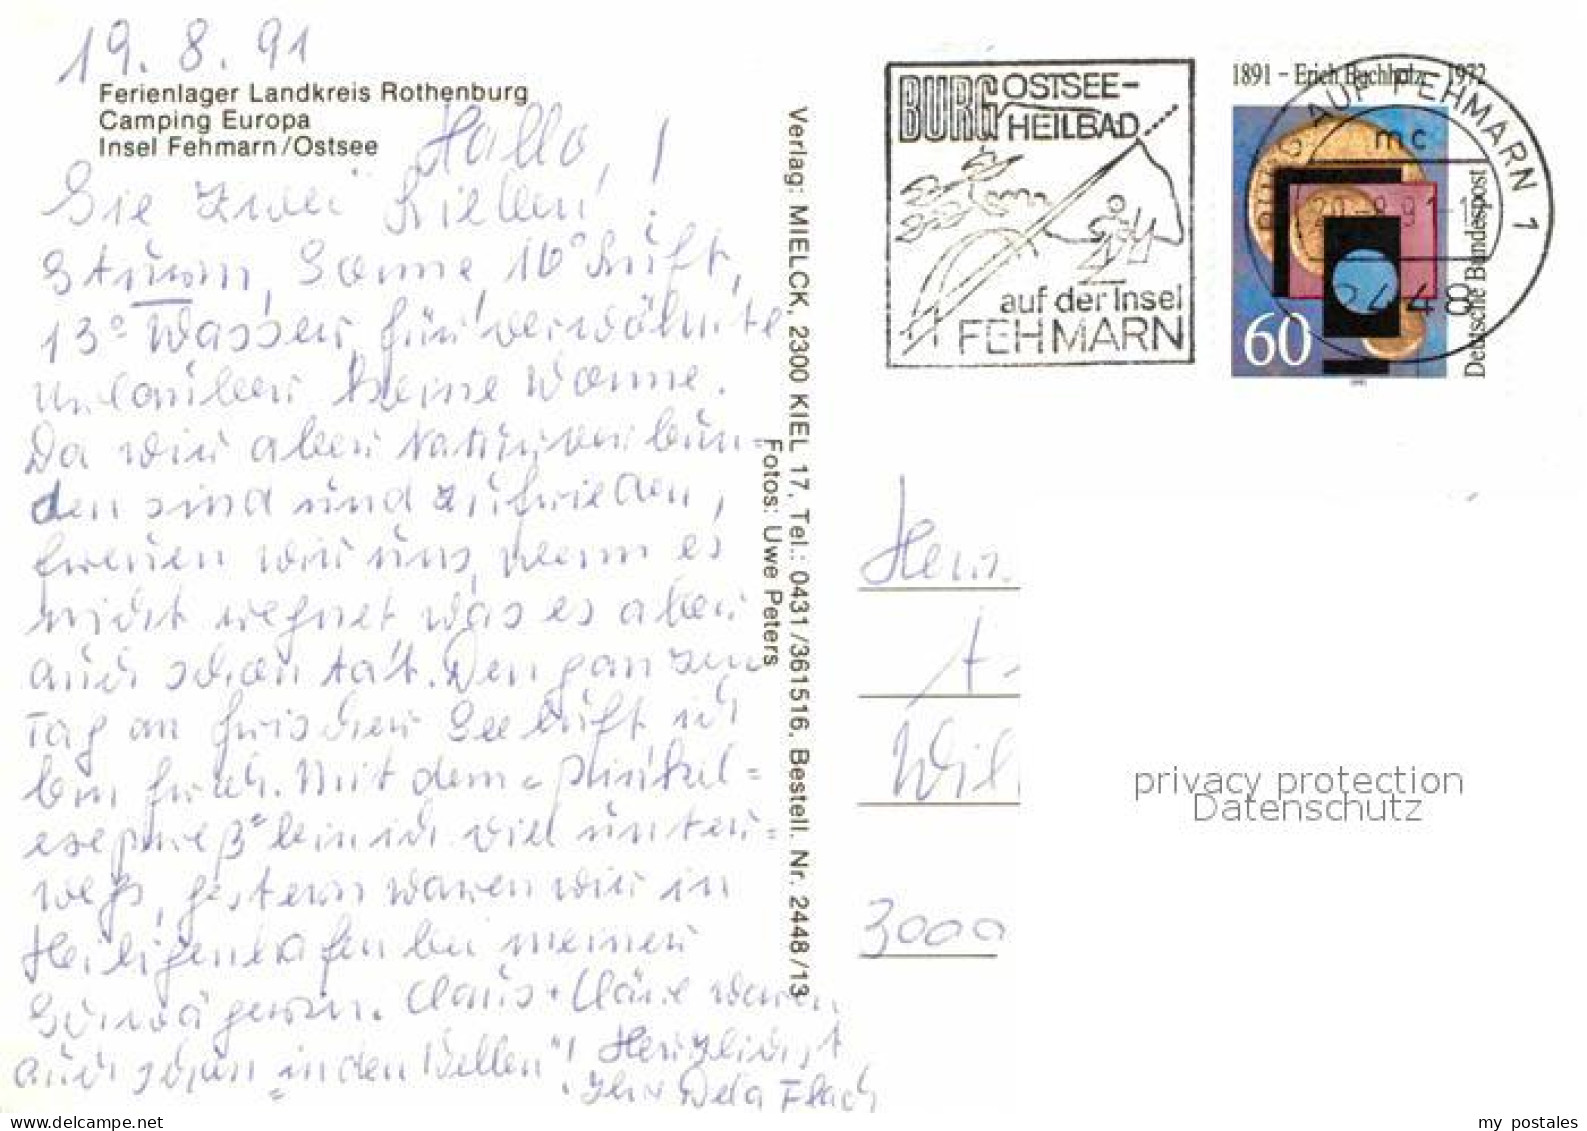 19. 8. 91
Ferienlager Landkreis Rothenburg
Camping Europa
Insel Fehmarn/Ostsee
Hallo, !
Sie zwei Lieben!
Sturm, Sonne, 16° Luft,
13° Wasser für verwöhnte
Urlauber keine Wonne.
Da wir aber naturverbun-
den sind und zufrieden,
freuen wir uns, wenn es
nicht regnet was es aber
auch schon tat. Den ganzen
Tag an frischer Seeluft ich
bin froh. Mit dem
bin ich viel unter-
wegs, gestern waren wir in
Heiligenhafen bei meiner
Schwägerin. Claus + Kläre waren
auch schon "in den Wellen"! Herzlichst
Ihre Dela Flach
Verlag: MIELCK, 2300 KIEL 17, Tel.: 0431/361516, Bestell. Nr. 2448/13
Fotos: Uwe Peters
BURG OSTSEE-
HEILBAD
auf der Insel
FEHMARN
1891 – Erich Buchholz – 1972
Deutsche Bundespost
60
BURG AUF FEHMARN 1
mc
20.-8.91-1
2448
Herr
Wil
3000
privacy protection
Datenschutz
my postales